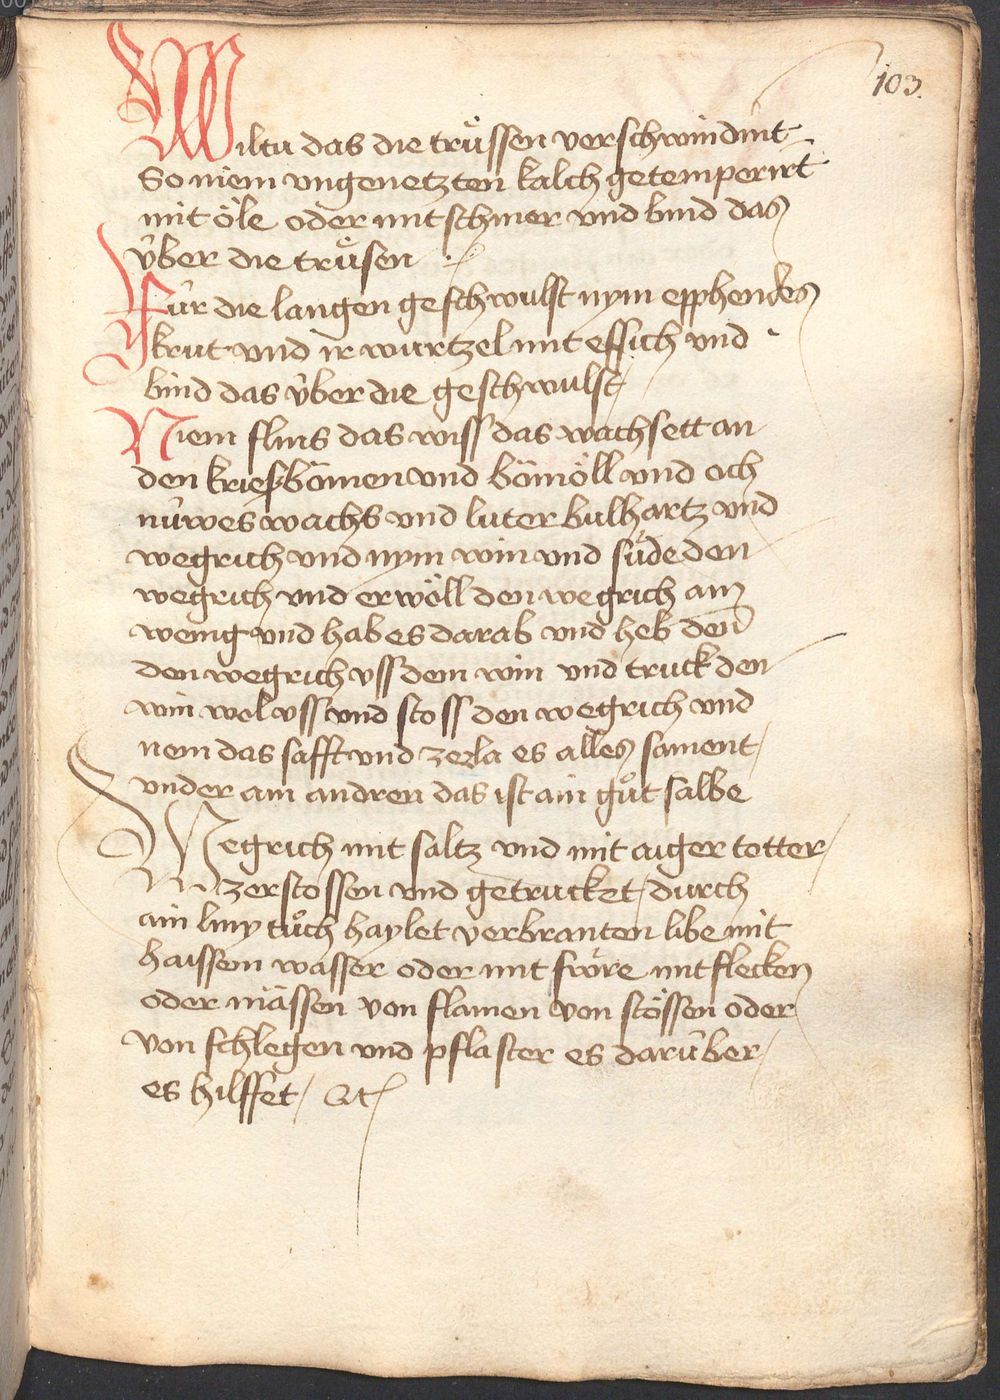 103.
Wiltu das die trüssen verschwindint
So niem ungenetzten kalch getemperirt
mit öle oder mit schmer vnd bind das
v̈ber die trüsen
Für die langen geschwulst nym epphendes
krut vnd ir wurtzel mit essich vnd
bind das v̈ber die geschwulst
Niem flins das wiss das wachsett an
den kriesbömen vnd bömöll vnd och
nüwes wachs vnd luter bulhartz vnd
wegrich vnd nym win vnd süde den
wegrich vnd erwöll den wegrich ain
wenig vnd hab es darab vnd heb den
den wegrich vss dem win vnd truck den
win wol vss vnd stoss den wegrich vnd
nem das safft vnd zerla es alles sament
vnder ain andren das ist ain gůt salbe
Wegrich mit saltz vnd mit aiger totter
zerstossen vnd getrucket durch
ain liny tůch haylet verbranten libe mit
haissem wasser oder mit fröre mit flecken
oder mässen von flamen von stössen oder
von schlegen vnd pflaster es darüber
es hilffet / &c